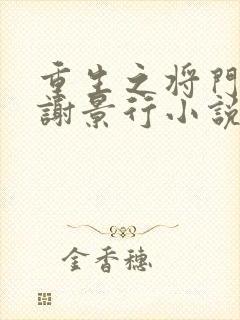 重生之将門
謝景行小説
金香穗